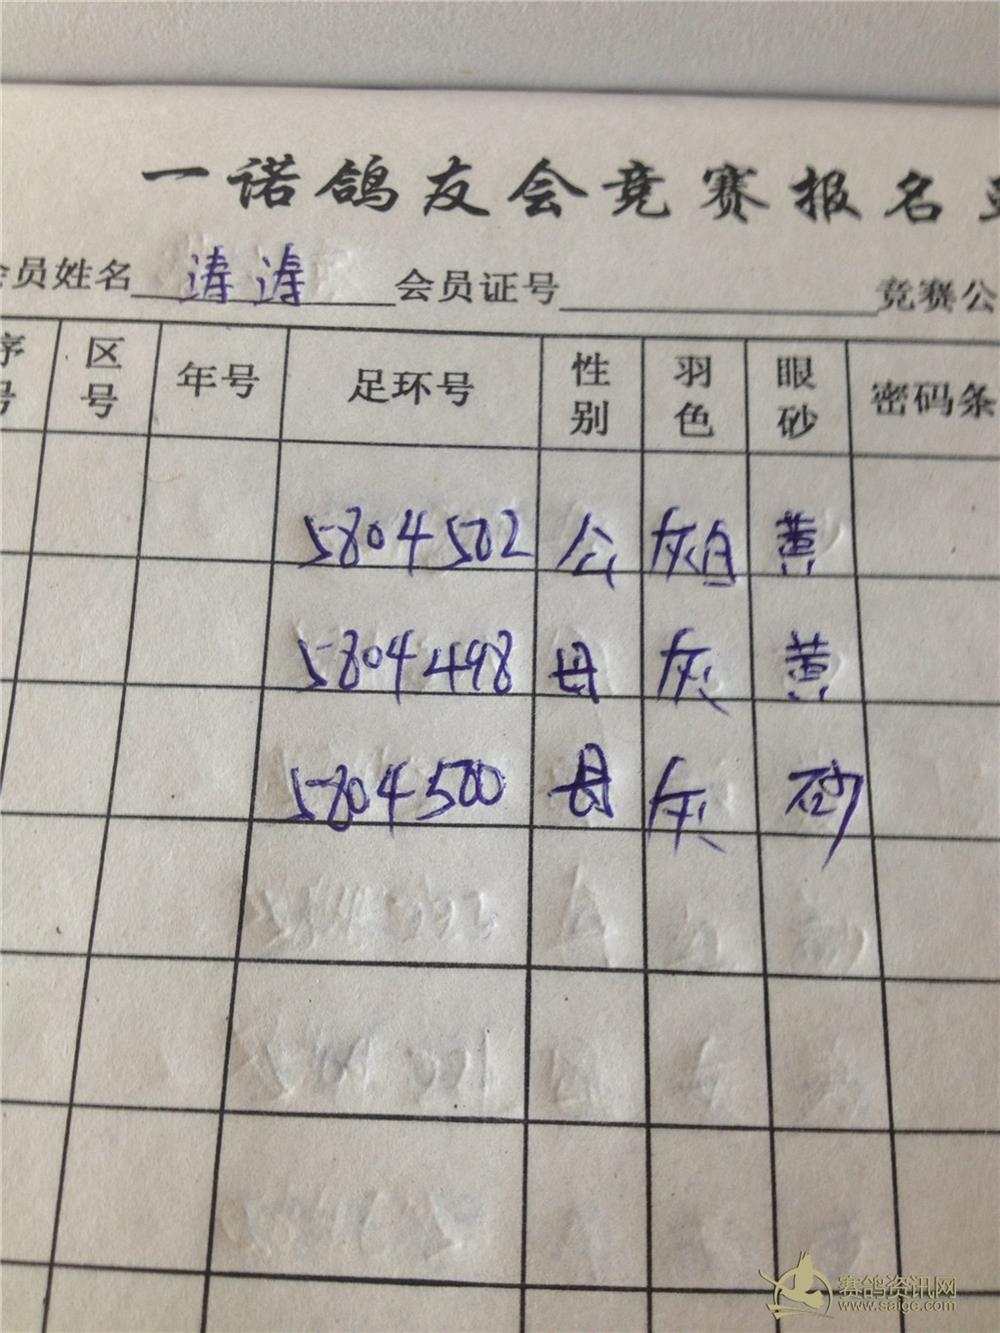 一诺鸽友会竞赛报名
会员姓名 涛涛 会员证号 竞赛公
序号 区号 年号 足环号 性别 羽色 眼砂 密码条
5804502 公 灰白 黄
5804498 母 灰 黄
5804500 母 灰 砂
赛鸽资讯网
www.saigc.com